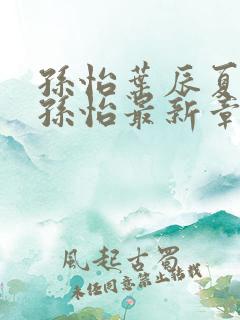 孫怡葉辰夏
孫怡最新章
風起古蜀
未经同意禁止转载